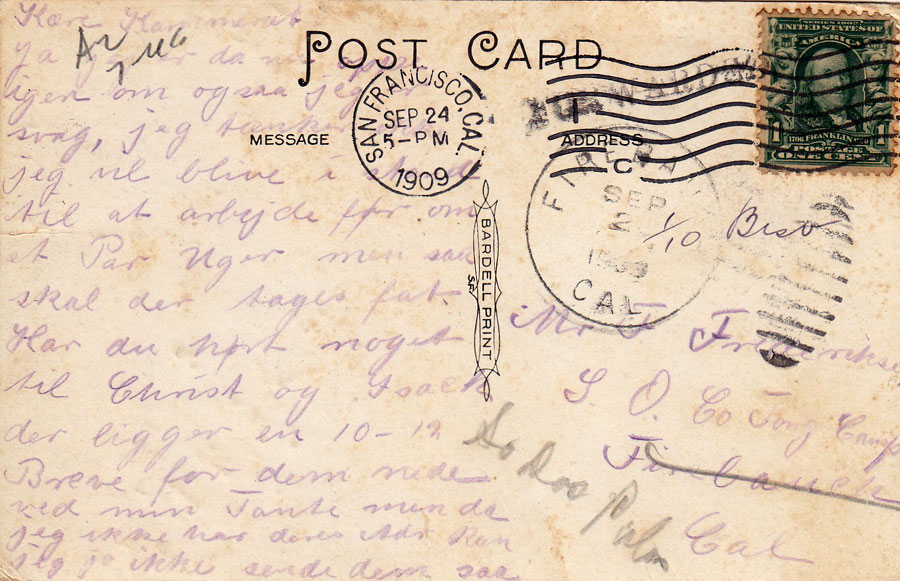 Kære Kammerat
ja
igen om ogsaa jeg
svag, jeg tænker
jeg vil blive i
til at arbejde før om
et Par Uger men saa
skal der tages fat.
Har du hørt noget
til Christ og Isack
der ligger en 10-12
Breve for dem nede
ved min Tante men da
jeg ikke har deres Adr kan
jeg jo ikke sende dem saa
POST CARD
MESSAGE
SAN FRANCISCO, CAL.
SEP 24
5-PM
1909
BARDELL PRINT
S.F.
ADDRESS
SERIES 1902
UNITED STATES OF
FRANKLIN
POSTAGE
ONE CENT
FORWARDED
SEP
2
1909
CAL
1/10 Besv
Mr F Frederiksen
S. O. Co Camp
Cal
Dos Palos